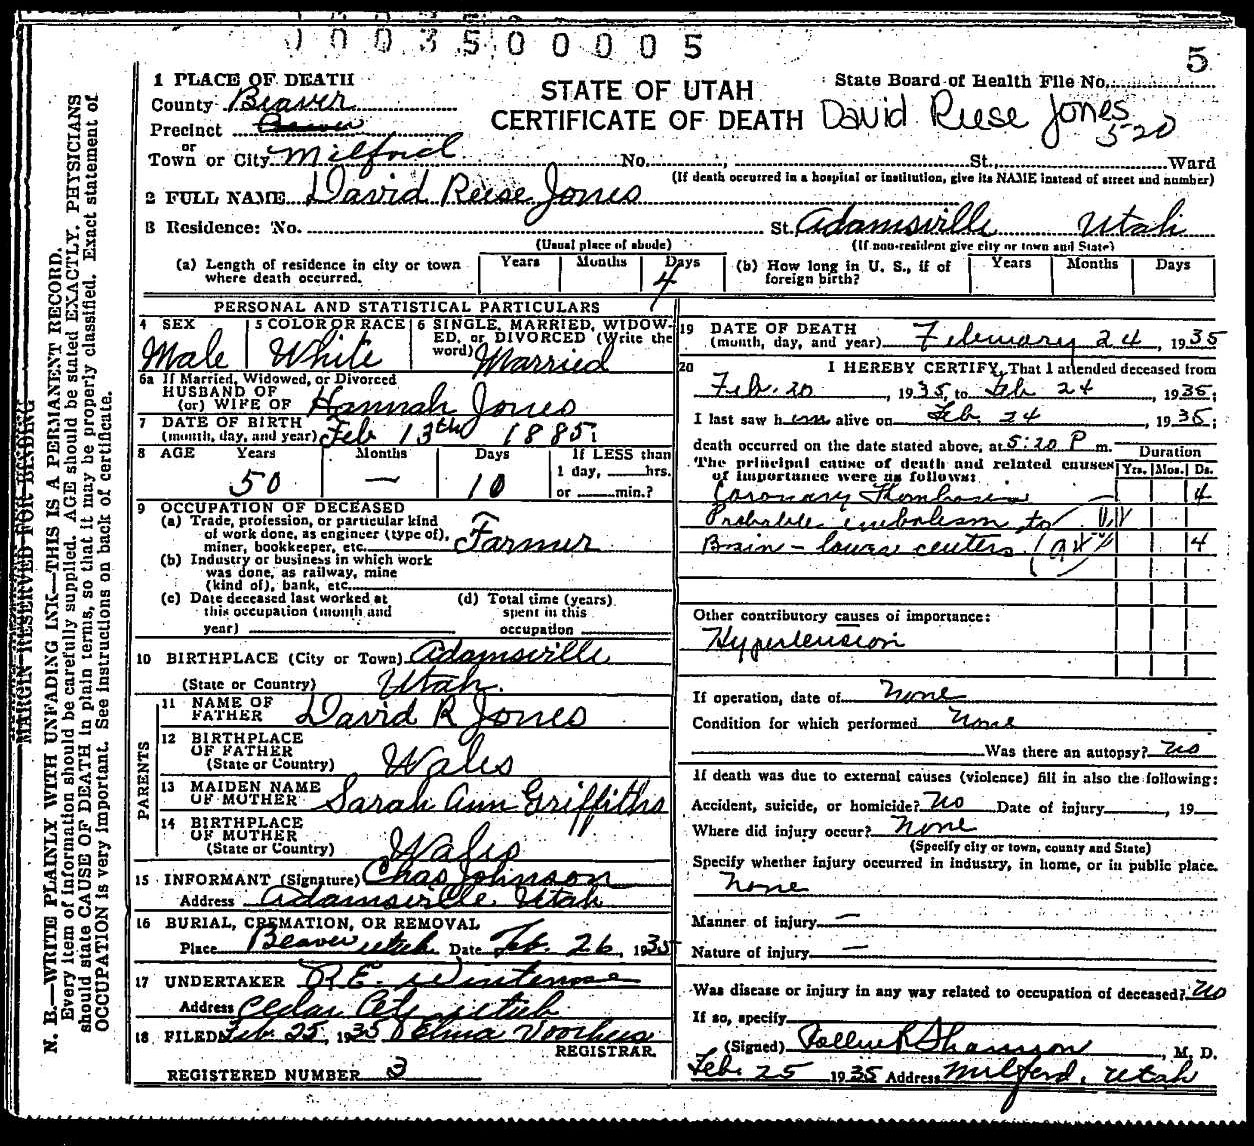 10035 00005
5
1 PLACE OF DEATH
County Beaver
Precinct Beaver
or
Town or City Milford No. , St. Ward
STATE OF UTAH
CERTIFICATE OF DEATH
State Board of Health File No.
David Reese Jones
5-20
(If death occurred in a hospital or institution, give its NAME instead of street and number)
2 FULL NAME David Reese Jones
3 Residence: No. St. Adamsville Utah
(Usual place of abode) (If non-resident give city or town and State)
(a) Length of residence in city or town where death occurred. Years Months Days 4
(b) How long in U. S., if of foreign birth? Years Months Days
PERSONAL AND STATISTICAL PARTICULARS
4 SEX Male
5 COLOR OR RACE White
6 SINGLE, MARRIED, WIDOWED, or DIVORCED (Write the word) Married
6a If Married, Widowed, or Divorced
HUSBAND OF
(or) WIFE OF Hannah Jones
7 DATE OF BIRTH
(month, day, and year) Feb 13th 1885
8 AGE Years 50 Months — Days 10
If LESS than
1 day, hrs.
or min.?
9 OCCUPATION OF DECEASED
(a) Trade, profession, or particular kind
of work done, as engineer (type of),
miner, bookkeeper, etc. Farmer
(b) Industry or business in which work
was done, as railway, mine
(kind of), bank, etc.
(c) Date deceased last worked at
this occupation (month and
year)
(d) Total time (years)
spent in this
occupation
10 BIRTHPLACE (City or Town) Adamsville
(State or Country) Utah.
PARENTS
11 NAME OF
FATHER David R Jones
12 BIRTHPLACE
OF FATHER
(State or Country) Wales
13 MAIDEN NAME
OF MOTHER Sarah Ann Griffiths
14 BIRTHPLACE
OF MOTHER
(State or Country) Wales
15 INFORMANT (Signature) Chas Johnson
Address Adamsville Utah
16 BURIAL, CREMATION, OR REMOVAL
Place Beaver Utah Date Feb. 26, 1935
17 UNDERTAKER R.E.
Address Cedar City Utah
18 FILED Feb. 25, 1935 Voorhees
REGISTRAR.
REGISTERED NUMBER 3
19 DATE OF DEATH
(month, day, and year) February 24, 1935
20 I HEREBY CERTIFY, That I attended deceased from
Feb. 20, 1935, to Feb 24, 1935;
I last saw him alive on Feb 24, 1935;
death occurred on the date stated above, at 5:20 P m.
The principal cause of death and related causes
of importance were as follows:
Duration
Yrs. Mos. Ds.
Coronary Thombosis — 4
Probable embolism to
Brain - lower centers 4
Other contributory causes of importance:
Hypertension
If operation, date of None
Condition for which performed None
Was there an autopsy? no
If death was due to external causes (violence) fill in also the following:
Accident, suicide, or homicide? No Date of injury , 19
Where did injury occur? None
(Specify city or town, county and State)
Specify whether injury occurred in industry, in home, or in public place.
None
Manner of injury —
Nature of injury —
Was disease or injury in any way related to occupation of deceased? No
If so, specify
(Signed) , M. D.
Feb. 25 1935 Address Milford, Utah
MARGIN RESERVED FOR BINDING
N. B.—WRITE PLAINLY WITH UNFADING INK—THIS IS A PERMANENT RECORD.
Every item of information should be carefully supplied. AGE should be stated EXACTLY. PHYSICIANS
should state CAUSE OF DEATH in plain terms, so that it may be properly classified. Exact statement of
OCCUPATION is very important. See instructions on back of certificate.